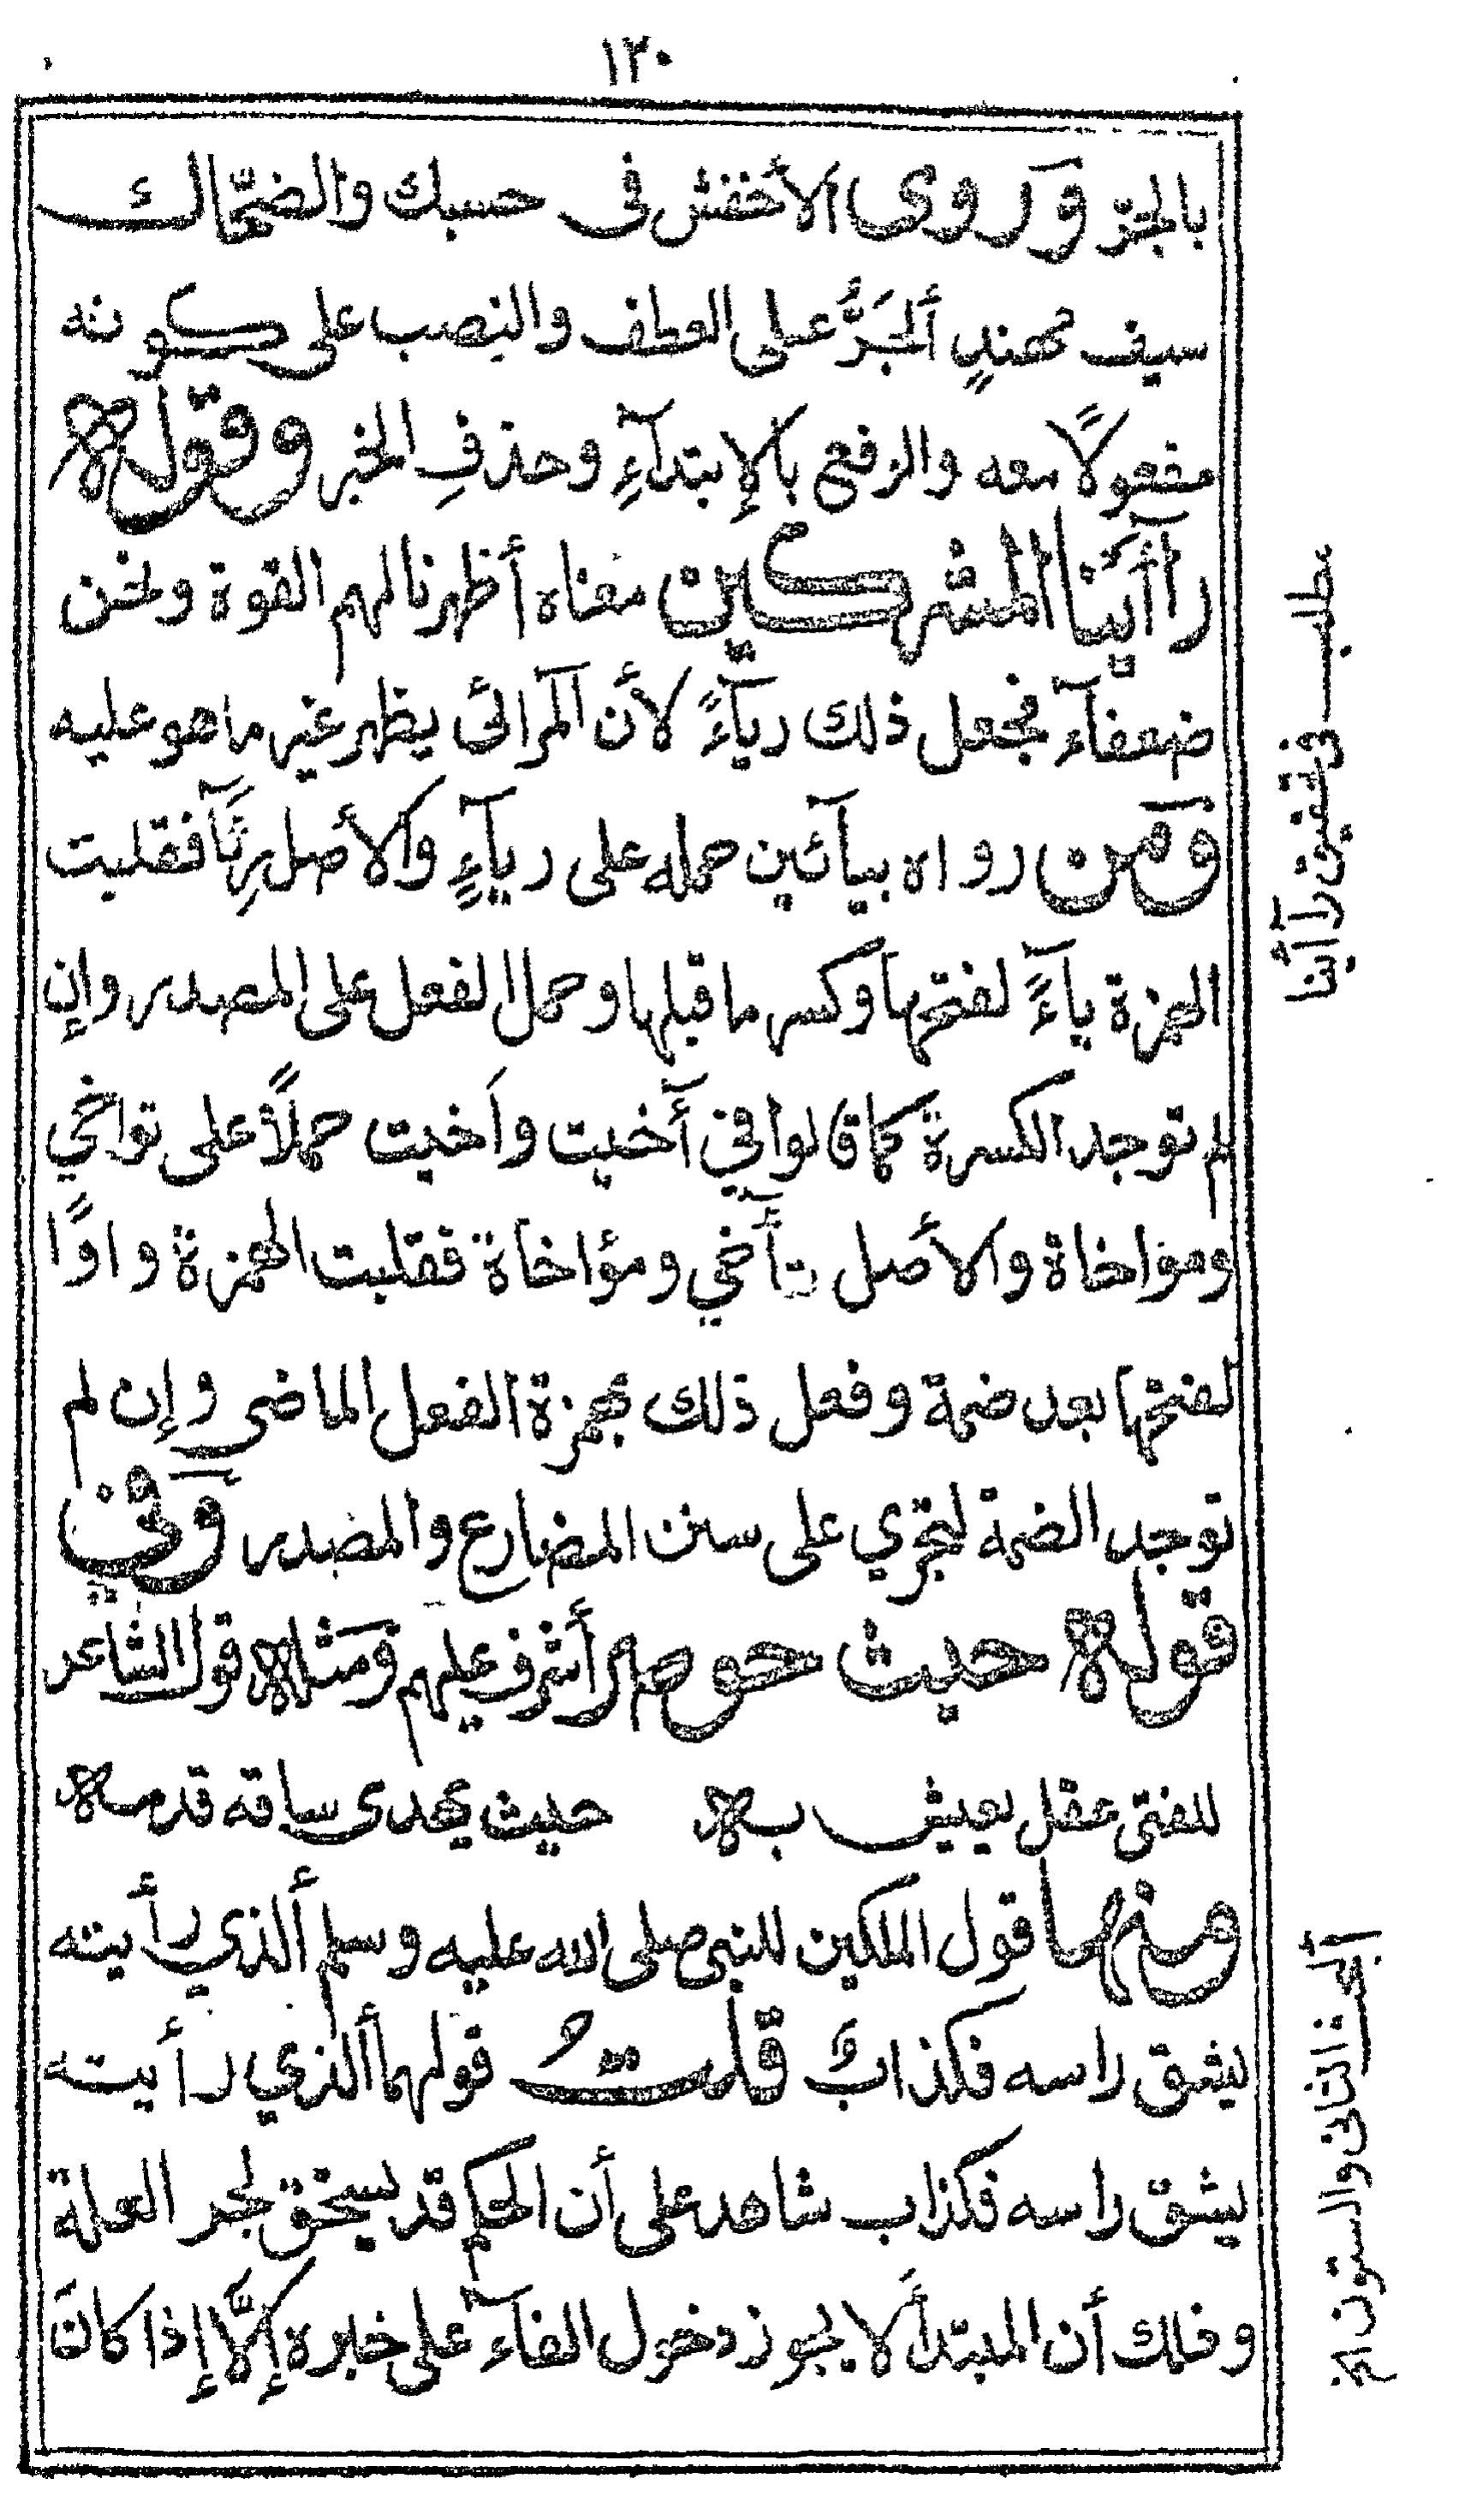 ١٣٠
بالجرّ وروى الأخفش فى حسبك والضحّاك
سيف مهندٍ ألجَرُّ على العطف والنصب على كونه
مفعولاً معه والرفع بالإبتدآءِ وحذفِ الخبر وقوله
راآيْنا المشركين معناه أظهرنا لهم القوة ونحن
ضعفآء فجعل ذلك ريآءً لأن المرائى يظهر غير ما هو عليه
ومن رواه بيآئين حمله على ريآءٍ والأصل رِئَآ فقلبت
الهمزة يآءً لفتحها وكسر ما قبلها وحمل الفعل على المصدر وإن
لم توجد الكسرة كما قالوا في آخيت واَخيت حملاً على تواخي
ومواخاة والأصل تآخي ومؤاخاة فقلبت الهمزة واوًا
لفتحها بعد ضمة وفعل ذلك بهمزة الفعل الماضى وإن لم
توجد الضمة لتجري على سنن المضارع والمصدر وفي
قوله حيث حوصر أشرف عليهم ومثله قول الشاعر
للفتى عقل يعيش به حيث يهدى ساقه قدمه
ومنها قول الملكين للنبى صلى الله عليه وسلم ألذي رأيته
يشق راسه فكذاب قلتُ قولهما ألذي رأيته
يشق راسه فكذاب شاهد على أن الحكم قد يستحق لجر العلة
وفلك أن المبتدأ لا يجوز دخول الفآء على خبره إلّا إذا كانَ
مطلب فى تحقيق راآينا
ألجزة الثانى والستون الخ